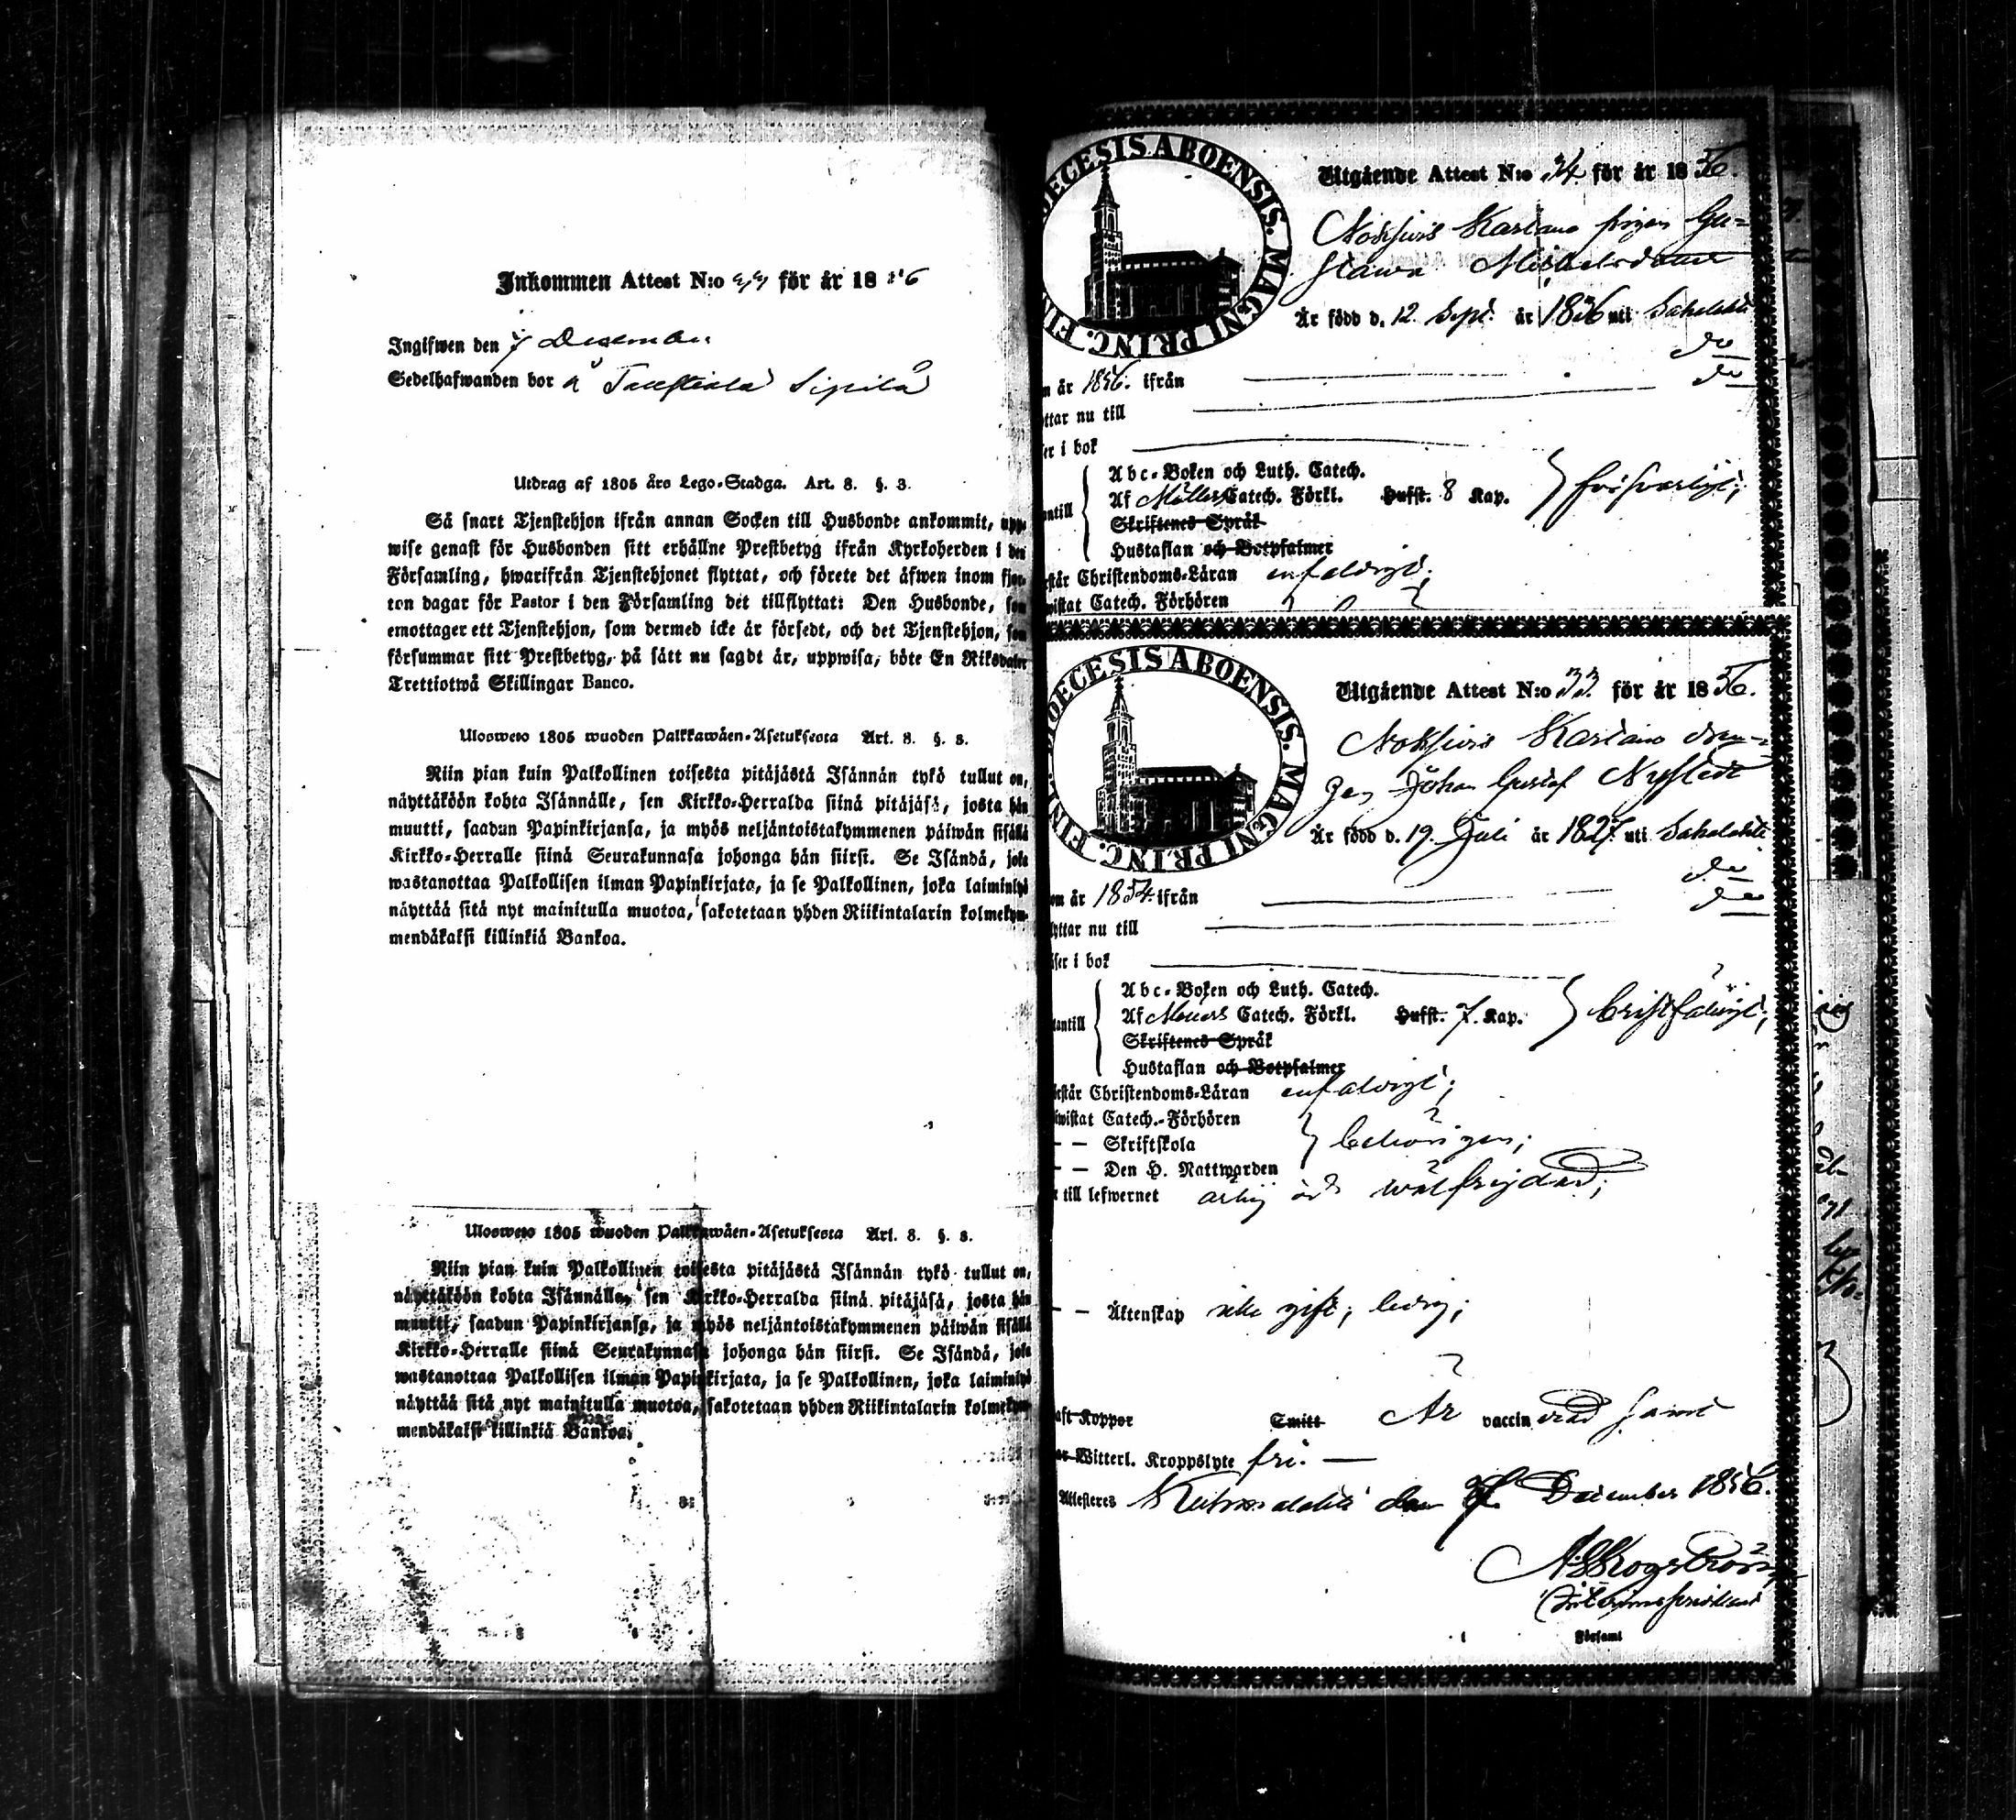 Inkommen Attest N:o för år 18 6
Ingifwen den 7 December
Sedelhafwanden bor å Sipilä
Utdrag af 1805 års Lego-Stadga. Art. 8. §. 3.
Så snart Tjenstehjon ifrån annan Socken till Husbonde ankommit, upp-
wise genast för Husbonden sitt erhållne Prestbetyg ifrån Kyrkoherden i den
Församling, hwarifrån Tjenstehjonet flyttat, och förete det äfwen inom fjor-
ton dagar för Pastor i den Församling det tillflyttat: Den Husbonde, som
emottager ett Tjenstehjon, som dermed icke är försedt, och det Tjenstehjon, som
försummar sitt Prestbetyg, på sätt nu sagdt är, uppwisa, böte En Riksdaler
Trettiotwå Skillingar Banco.
Ulosweto 1805 wuoden Palkkawäen-Asetuksesta Art. 8. §. 3.
Niin pian kuin Palkollinen toisesta pitäjästä Isännän tykö tullut on,
näyttäköön kohta Isännälle, sen Kirkko-Herralda siinä pitäjäsä, josta hän
muutti, saadun Papinkirjansa, ja myös neljäntoistakymmenen päiwän sisällä
Kirkko-Herralle siinä Seurakunnasa johonga hän siirsi. Se Isändä, joka
wastanottaa Palkollisen ilman Papinkirjata, ja se Palkollinen, joka laiminlyö
näyttää sitä nyt mainitulla muotoa, sakotetaan yhden Riikintalarin kolmekym-
mendäkaksi killinkiä Bankoa.
Ulosweto 1805 wuoden Palkkawäen-Asetuksesta Art. 8. §. 3.
Niin pian kuin Palkollinen toisesta pitäjästä Isännän tykö tullut on,
näyttäköön kohta Isännälle, sen Kirkko-Herralda siinä pitäjäsä, josta hän
muutti, saadun Papinkirjansa, ja myös neljäntoistakymmenen päiwän sisällä
Kirkko-Herralle siinä Seurakunnasa johonga hän siirsi. Se Isändä, joka
wastanottaa Palkollisen ilman Papinkirjata, ja se Palkollinen, joka laiminlyö
näyttää sitä nyt mainitulla muotoa, sakotetaan yhden Riikintalarin kolmekym-
mendäkaksi killinkiä Bankoa.
DIOECESIS ABOENSIS. MAGNI PRINC. FIN
Utgående Attest N:o 34. för år 1856.
Karlano pigan Gu-
stawa Michelsdotter
Är född d. 12. Sept. år 1836 uti Sahalahti
m år 1856. ifrån do
ttar nu till do
er i bok
Abc-Boken och Luth. Catech.
ntill Af Möllers Catech. Förkl. Hufst. 8 Kap. försvarligt;
Skriftenes Språk
Hustaflan och Botpsalmer
rstår Christendoms-Läran enfaldigt;
wistat Catech. Förhören
DIOECESIS ABOENSIS. MAGNI PRINC. FIN
Utgående Attest N:o 33. för år 1856.
Karlano drän-
gen Johan Gustaf Nystedt
Är född d. 19. Juli år 1827. uti Sahalahti
om år 1854. ifrån do
lyttar nu till do
äser i bok
Abc-Boken och Luth. Catech.
tantill Af Möllers Catech. Förkl. Hufst. 7. Kap. bristfäligt;
Skriftenes Språk
Hustaflan och Botpsalmer
rstår Christendoms-Läran enfaldigt;
wistat Catech.-Förhören
— — Skriftskola behörigen;
— — Den H. Nattwarden
r till lefwernet ärlig och wälfrejdad;
— — Äktenskap icke gift; ledig;
aft Koppor Smitt Är vaccinerad samt
ar Witterl. Kroppslyte fri. —
Attesteres Kuhmalahti den 7. December 1856.
A. Skogström
Församl